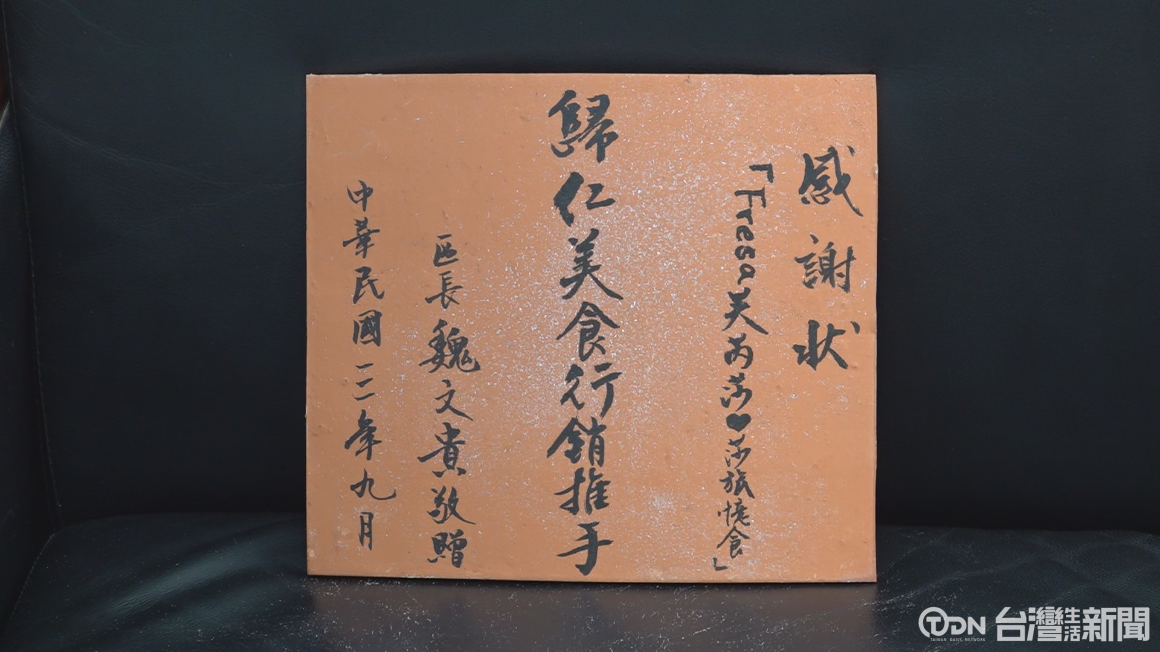 感謝狀
「Fresa芙芮莎❤莎旅憶食」
歸仁美食行銷推手
區長魏文貴敬贈
中華民國一一二年九月
TDN 台灣生活新聞
TAIWAN DAILY NETWORK